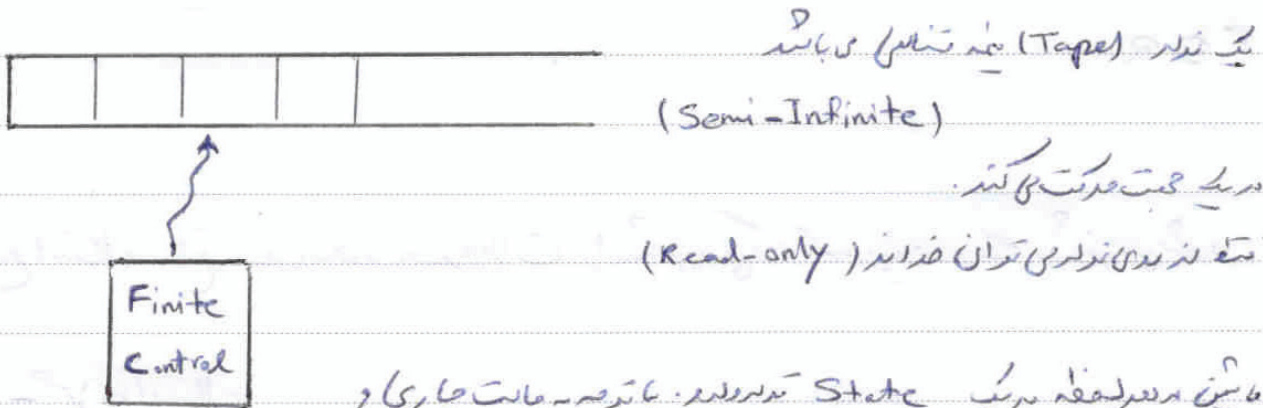 یک نوار (Tape) نیمه متناهی می باشد
(Semi-Infinite)
در یک جهت حرکت می کند.
فقط از روی نوار می توان خواند (Read-only)
Finite
Control
ماشین در هر لحظه در یک State قرار دارد. با توجه به حالت جاری و